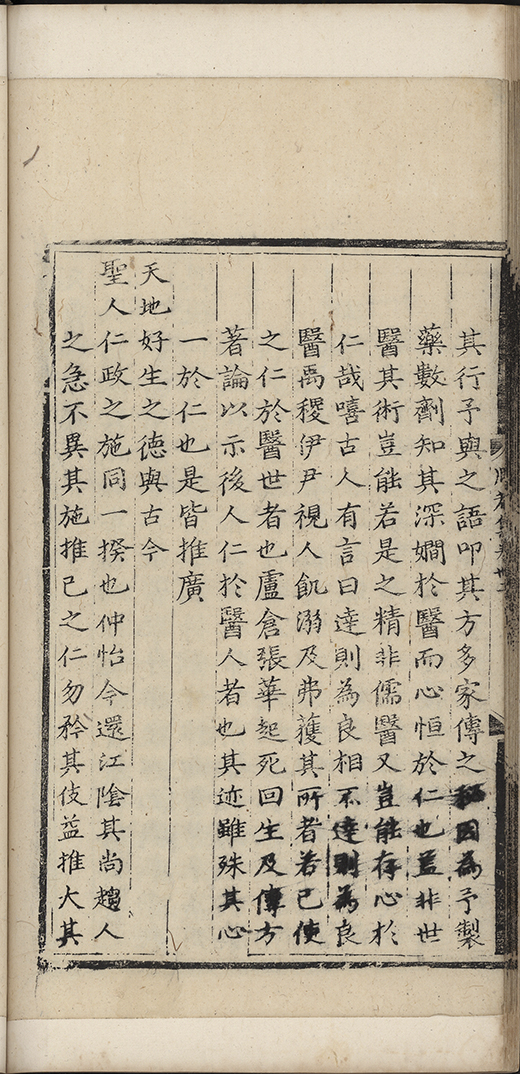 其行予與之語叩其方多家傳之秘因為予製
藥數劑知其深嫺於醫而心恒於仁也蓋非世
醫其術豈能若是之精非儒醫又豈能存心於
仁哉嘻古人有言曰達則為良相不達則為良
醫禹稷伊尹視人飢溺及弗獲其所者若己使
之仁於醫世者也盧倉張華起死回生及傳方
著論以示後人仁於醫人者也其迹雖殊其心
一於仁也是皆推廣
天地好生之德與古今
聖人仁政之施同一揆也仲怡今還江陰其尚趨人
之急不異其施推己之仁勿矜其伎益推大其